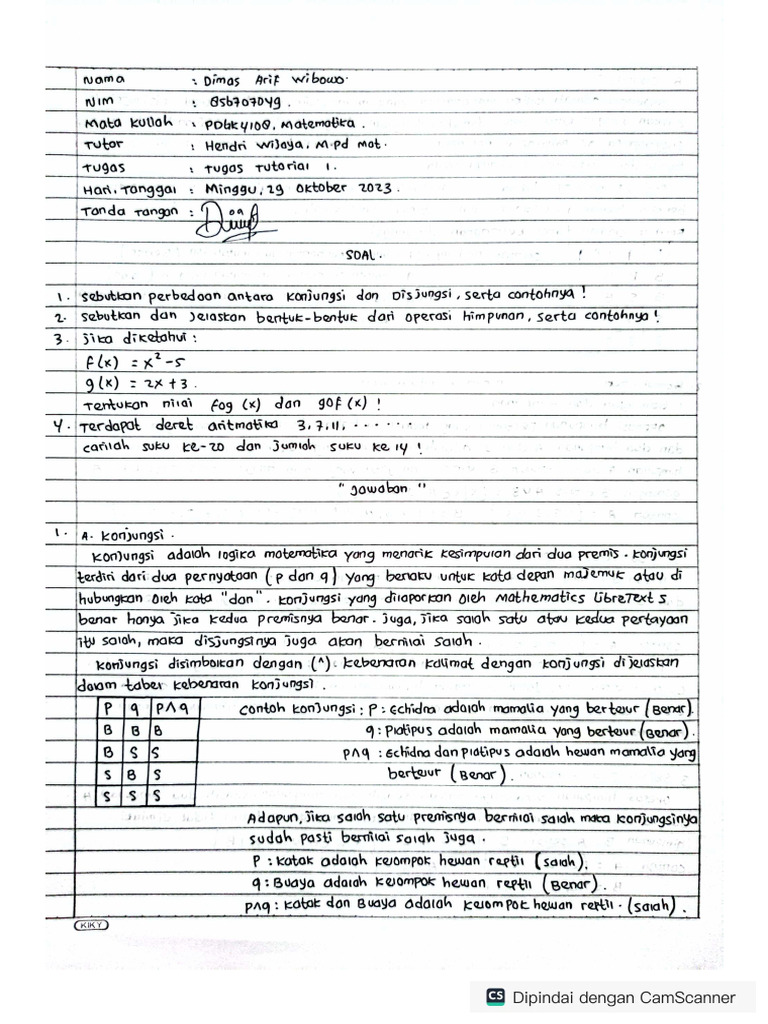 Nama : Dimas Arif Wibowo.
NIM : 856707049.
Mata Kuliah : PDGK4108, Matematika.
Tutor : Hendri Wijaya, M.pd Mat.
Tugas : Tugas Tutorial 1.
Hari, Tanggal : Minggu, 29 Oktober 2023.
Tanda Tangan :
SOAL.
1. Sebutkan perbedaan antara Konjungsi dan Disjungsi, serta contohnya!
2. Sebutkan dan jelaskan bentuk-bentuk dari operasi himpunan, serta contohnya!
3. Jika diketahui :
f(x) = x² - 5
g(x) = 2x + 3.
Tentukan nilai fog (x) dan gof (x) !
4. Terdapat deret aritmatika 3, 7, 11, .......
carilah suku ke-20 dan jumlah suku ke 14 !
" Jawaban "
1. A. Konjungsi.
Konjungsi adalah logika matematika yang menarik kesimpulan dari dua premis. Konjungsi
terdiri dari dua pernyataan (p dan q) yang berlaku untuk kata depan majemuk atau di
hubungkan oleh kata "dan". Konjungsi yang dilaporkan oleh Mathematics LibreTexts
benar hanya jika kedua premisnya benar. Juga, jika salah satu atau kedua pertayaan
itu salah, maka disjungsinya juga akan bernilai salah.
Konjungsi disimbolkan dengan (^). Kebenaran kalimat dengan konjungsi dijelaskan
dalam taber kebenaran konjungsi.
P q P^q
B B B
B S S
S B S
S S S
contoh konjungsi : P : Echidna adalah mamalia yang bertelur (Benar).
q : Platipus adalah mamalia yang bertelur (Benar).
P^q : Echidna dan Platipus adalah hewan mamalia yang
bertelur (Benar).
Adapun, jika salah satu premisnya bernilai salah maka konjungsinya
sudah pasti bernilai salah juga.
P : Katak adalah kelompok hewan reptil (salah).
q : Buaya adalah kelompok hewan reptil (Benar).
P^q : Katak dan Buaya adalah kelompok hewan reptil. (salah).
KIKY
CS Dipindai dengan CamScanner